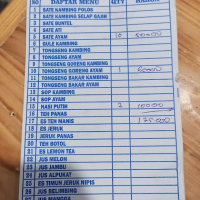 NO DAFTAR MENU QTY HARGA
1 SATE KAMBING POLOS
2 SATE KAMBING SELAP GAJIH
3 SATE BUNTEL
4 SATE ATI
5 SATE AYAM 10 50000
6 GULE KAMBING
7 TONGSENG KAMBING
8 TONGSENG AYAM
9 TONGSENG GORENG KAMBING
10 TONGSENG GORENG AYAM 1
11 TONGSENG BAKAR KAMBING
12 TONGSENG BAKAR AYAM
13 SOP KAMBING
14 SOP AYAM
15 NASI PUTIH 2 10000
16 TEH PANAS
17 ES TEH MANIS
18 ES JERUK
19 JERUK PANAS
20 TEH BOTOL
21 ES LEMON TEA
22 JUS MELON
23 JUS JAMBU
24 JUS ALPUKAT
25 ES TIMUN JERUK NIPIS
26 JUS BELIMBING
27 JUS MANGGA